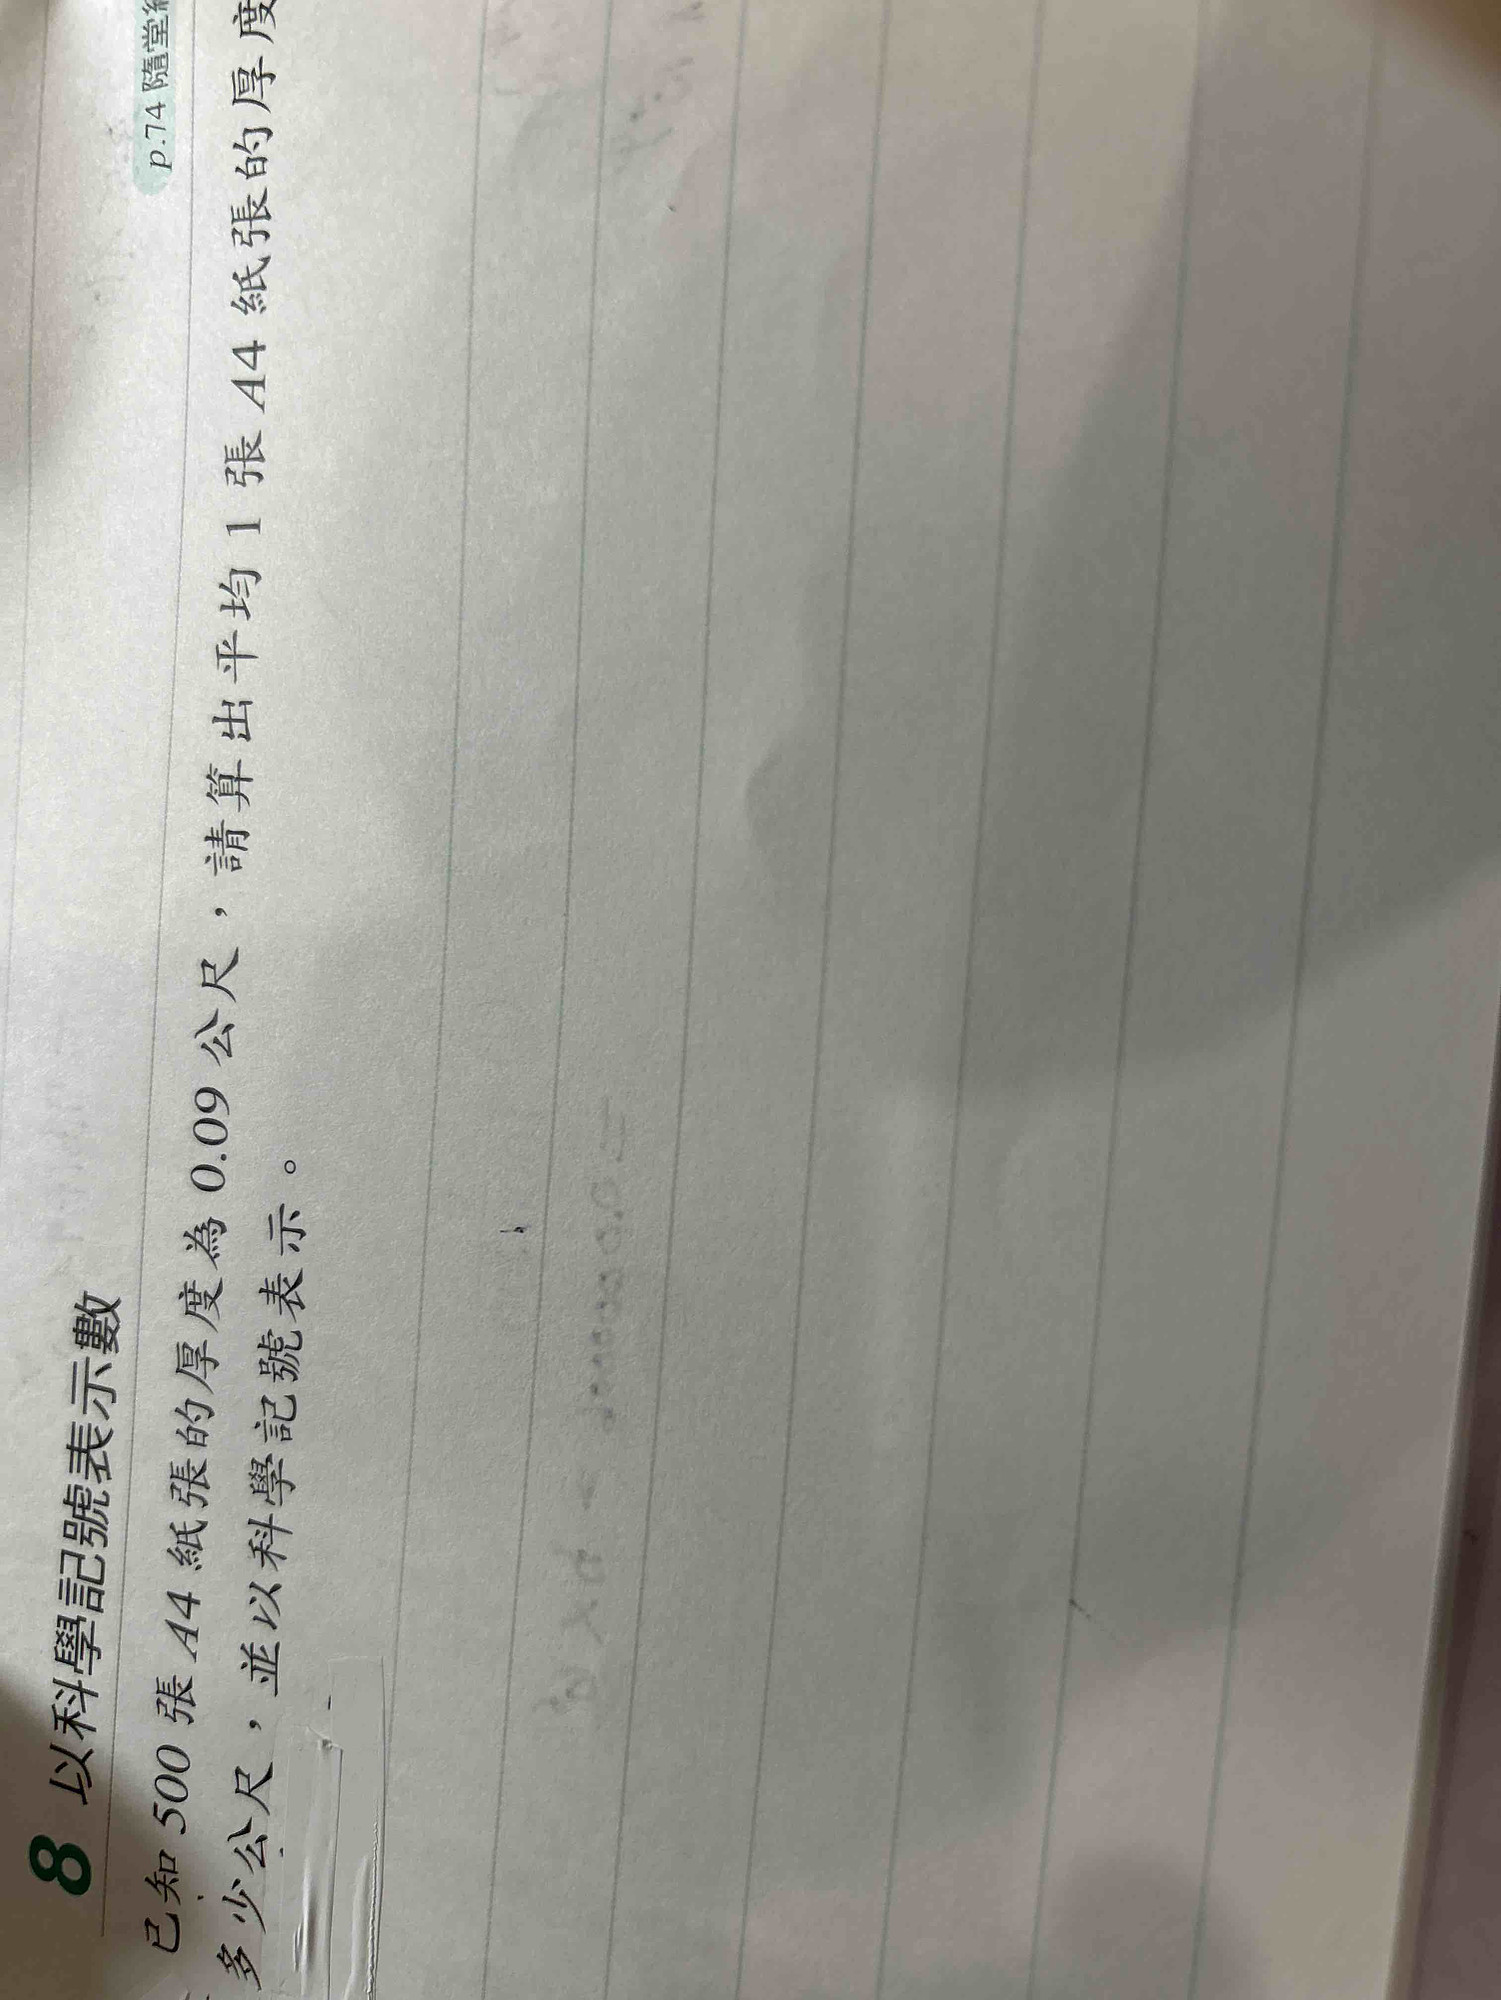 8 以科學記號表示數
p.74 隨堂
已知 500 張 A4 紙張的厚度為 0.09 公尺，請算出平均 1 張 A4 紙張的厚度
多少公尺，並以科學記號表示。